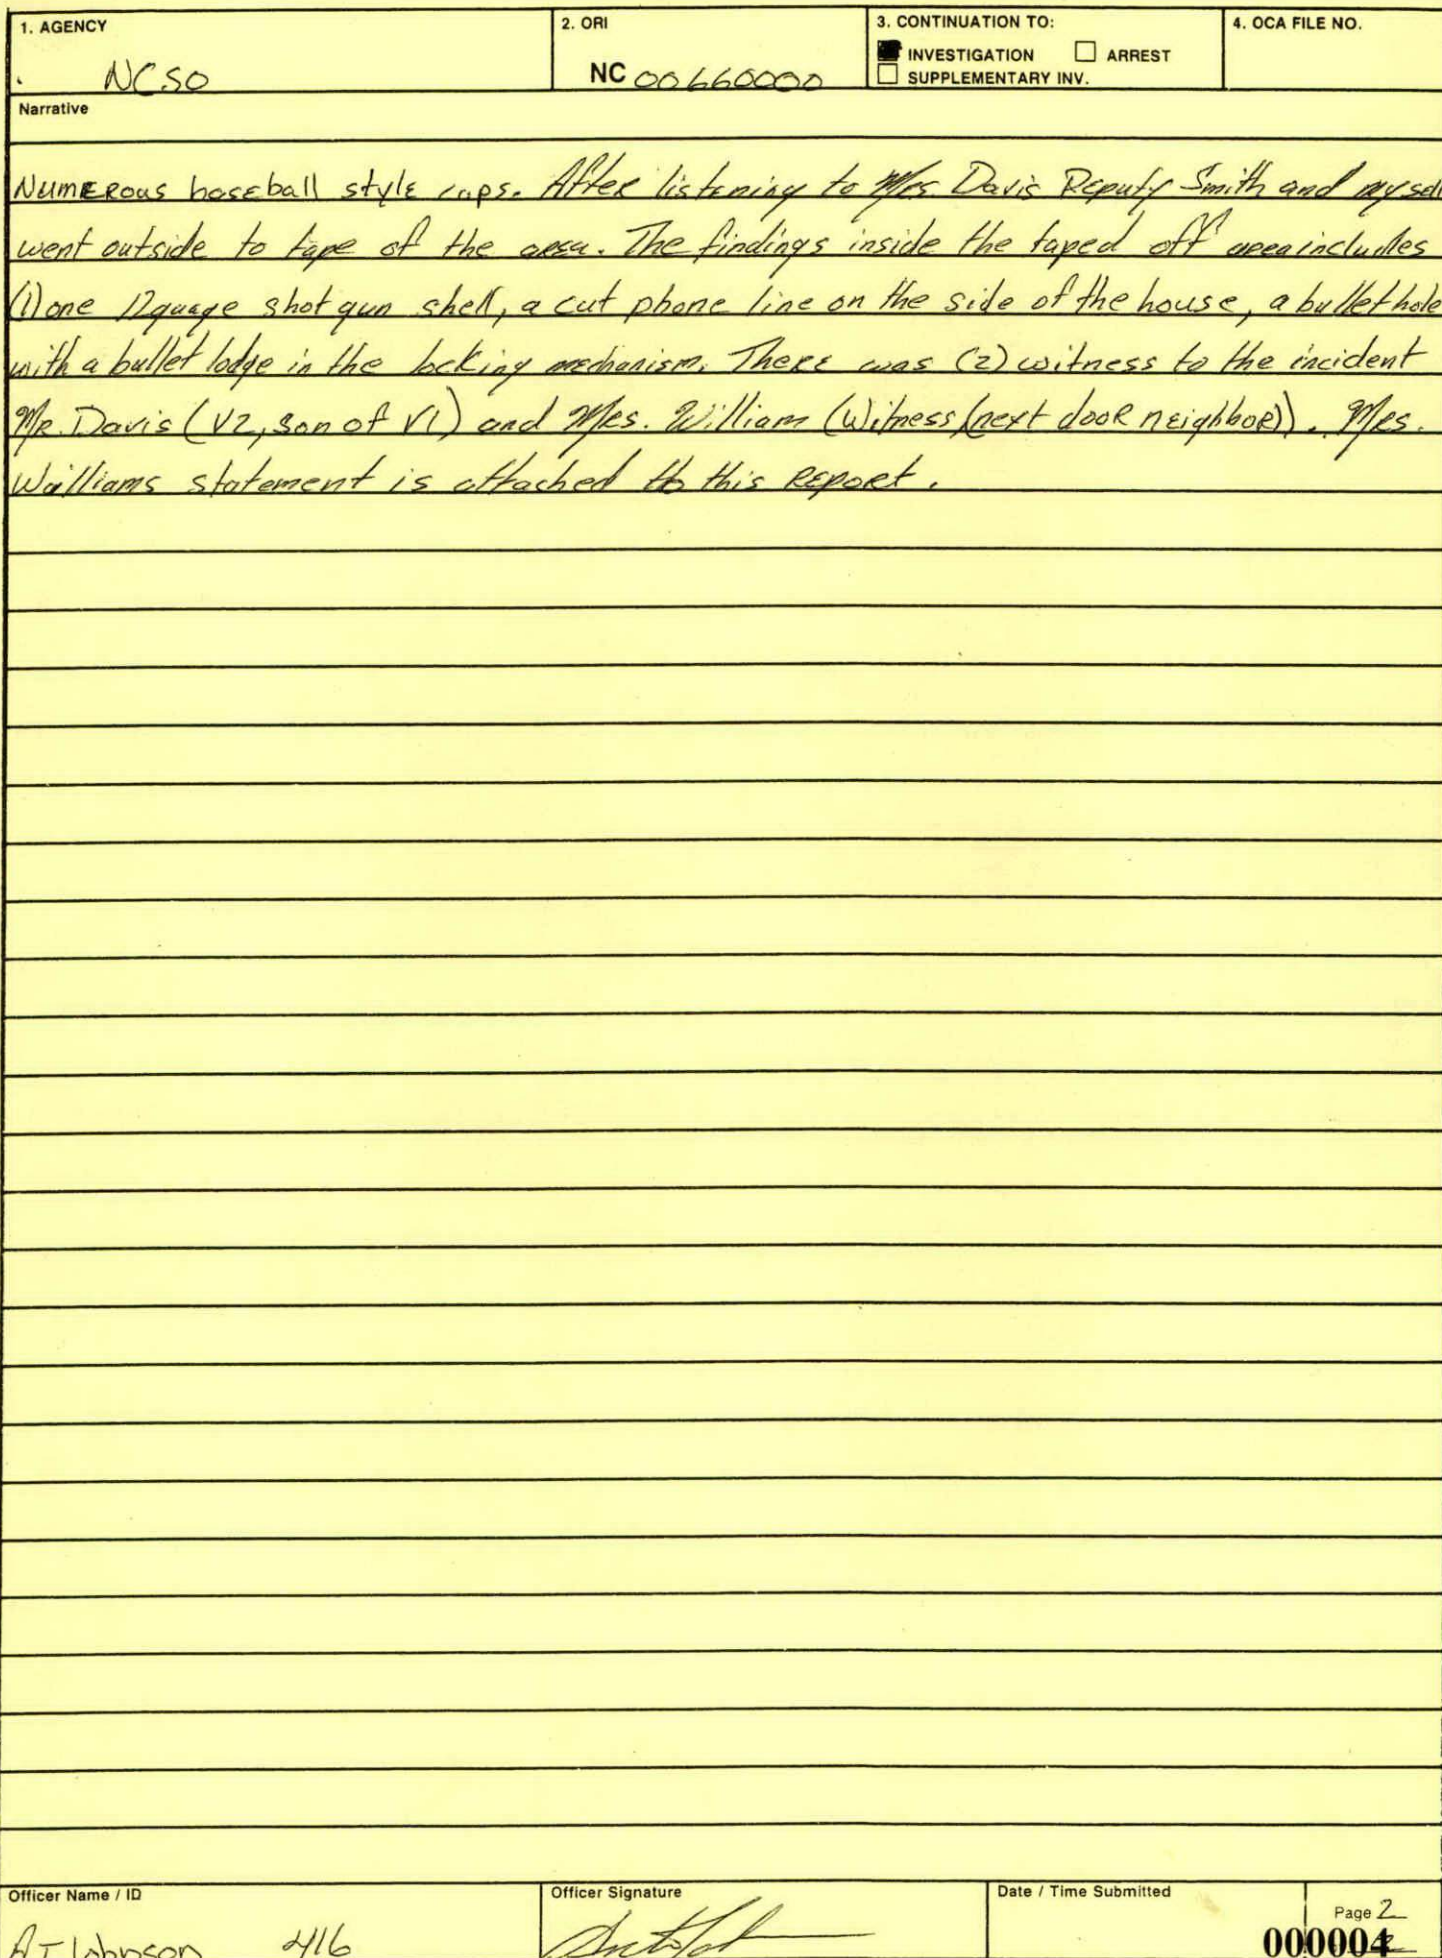 1. AGENCY 2. ORI 3. CONTINUATION TO: 4. OCA FILE NO.
INVESTIGATION ARREST
NCSO NC 00660000 SUPPLEMENTARY INV.
Narrative
Numerous baseball style caps. After listening to Mrs. Davis Deputy Smith and myself
went outside to tape of the area. The findings inside the taped off area includes
(1) one 12 guage shot gun shell, a cut phone line on the side of the house, a bullet hole
with a bullet lodge in the locking mechanism. There was (2) witness to the incident
Mr. Davis (V2, son of V1) and Mrs. William (Witness (next door neighbor)). Mrs.
Williams statement is attached to this report.
Officer Name / ID Officer Signature Date / Time Submitted
Page 2
Johnson 416 000004